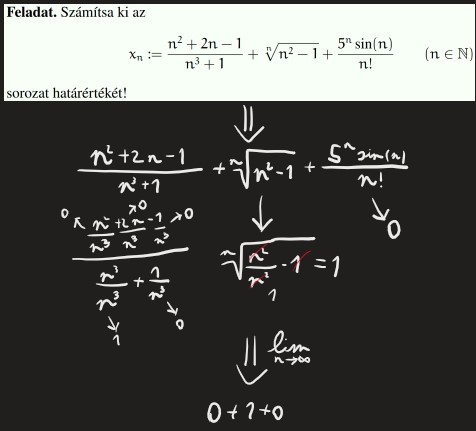 Feladat. Számítsa ki az
xₙ := (n² + 2n − 1)/(n³ + 1) + ⁿ√(n² − 1) + (5ⁿ sin(n))/n! (n ∈ ℕ)
sorozat határértékét!
⇓
(n² + 2n − 1)/(n³ + 1) + ⁿ√(n² − 1) + (5ⁿ sin(n))/n! → 0
(n²/n³ → 0 + 2n/n³ → 0 − 1/n³ → 0)/(n³/n³ → 1 + 1/n³ → 0)
ⁿ√(n²/n² − 1) = 1
1
⇓ lim n→∞
0 + 1 + 0